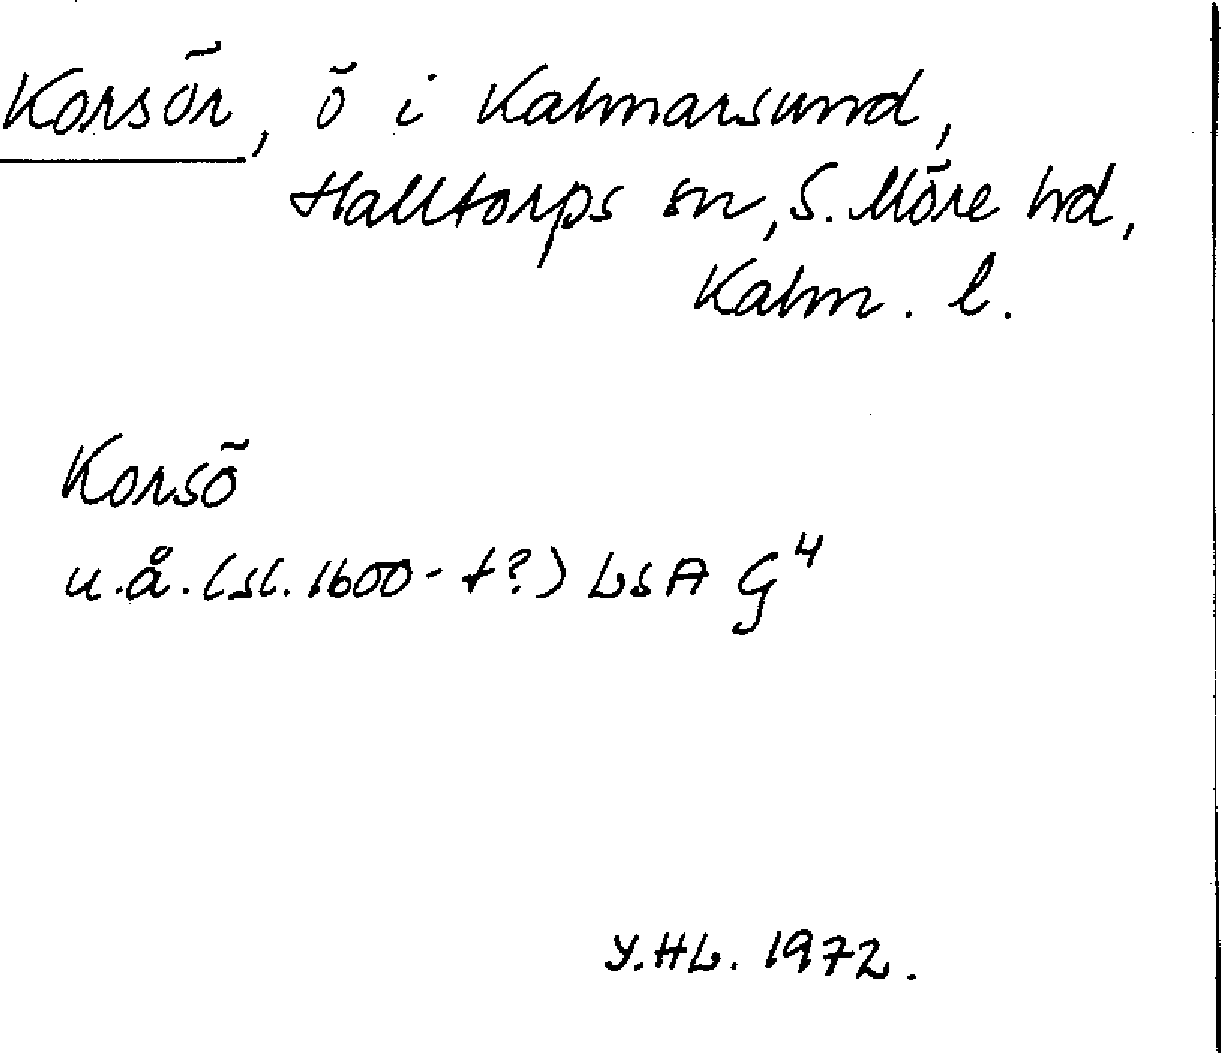 Korsör, ö i Kalmarsund,
Halltorps sn, S. Möre hd,
Kalm. l.
Korsö
u.å. (sl. 1600-t?) LSA G⁴
Y.HL. 1972.